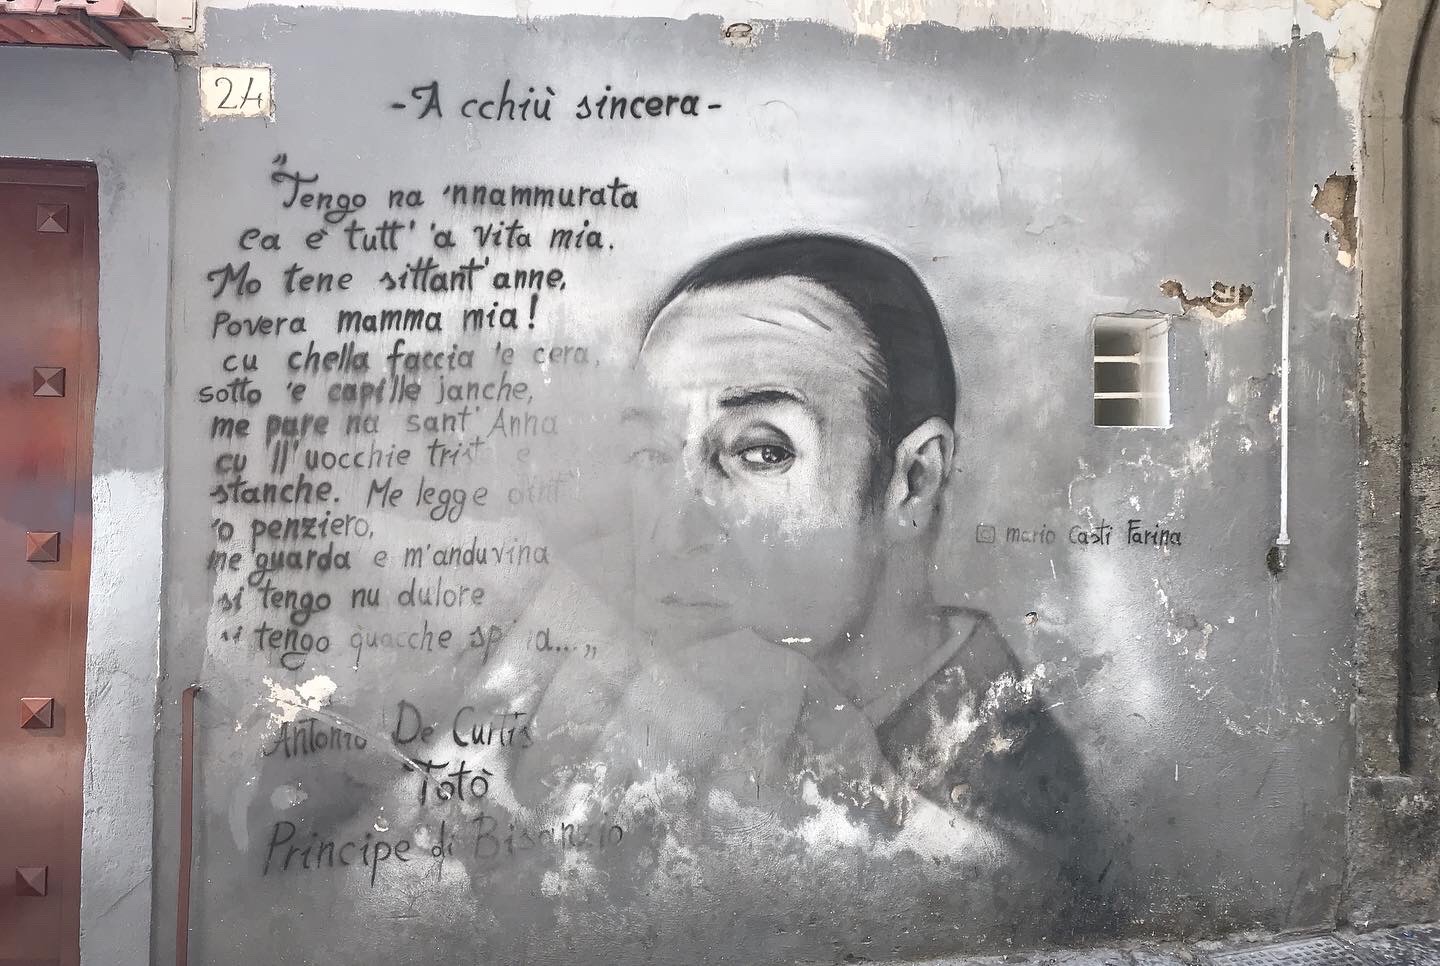 24
-'A cchiù sincera-
"Tengo na 'nnammurata
ca è tutt' 'a vita mia.
Mo tene sittant'anne,
povera mamma mia!
cu chella faccia 'e cera,
sotto 'e capille janche,
me pare na sant' Anna
cu ll'uocchie trist e
stanche. Me legge
'o penziero,
me guarda e m'anduvina
si tengo nu dulore
si tengo quacche
Antonio De Curtis
Totò
Principe di Bisanzio
mario Casti Farina